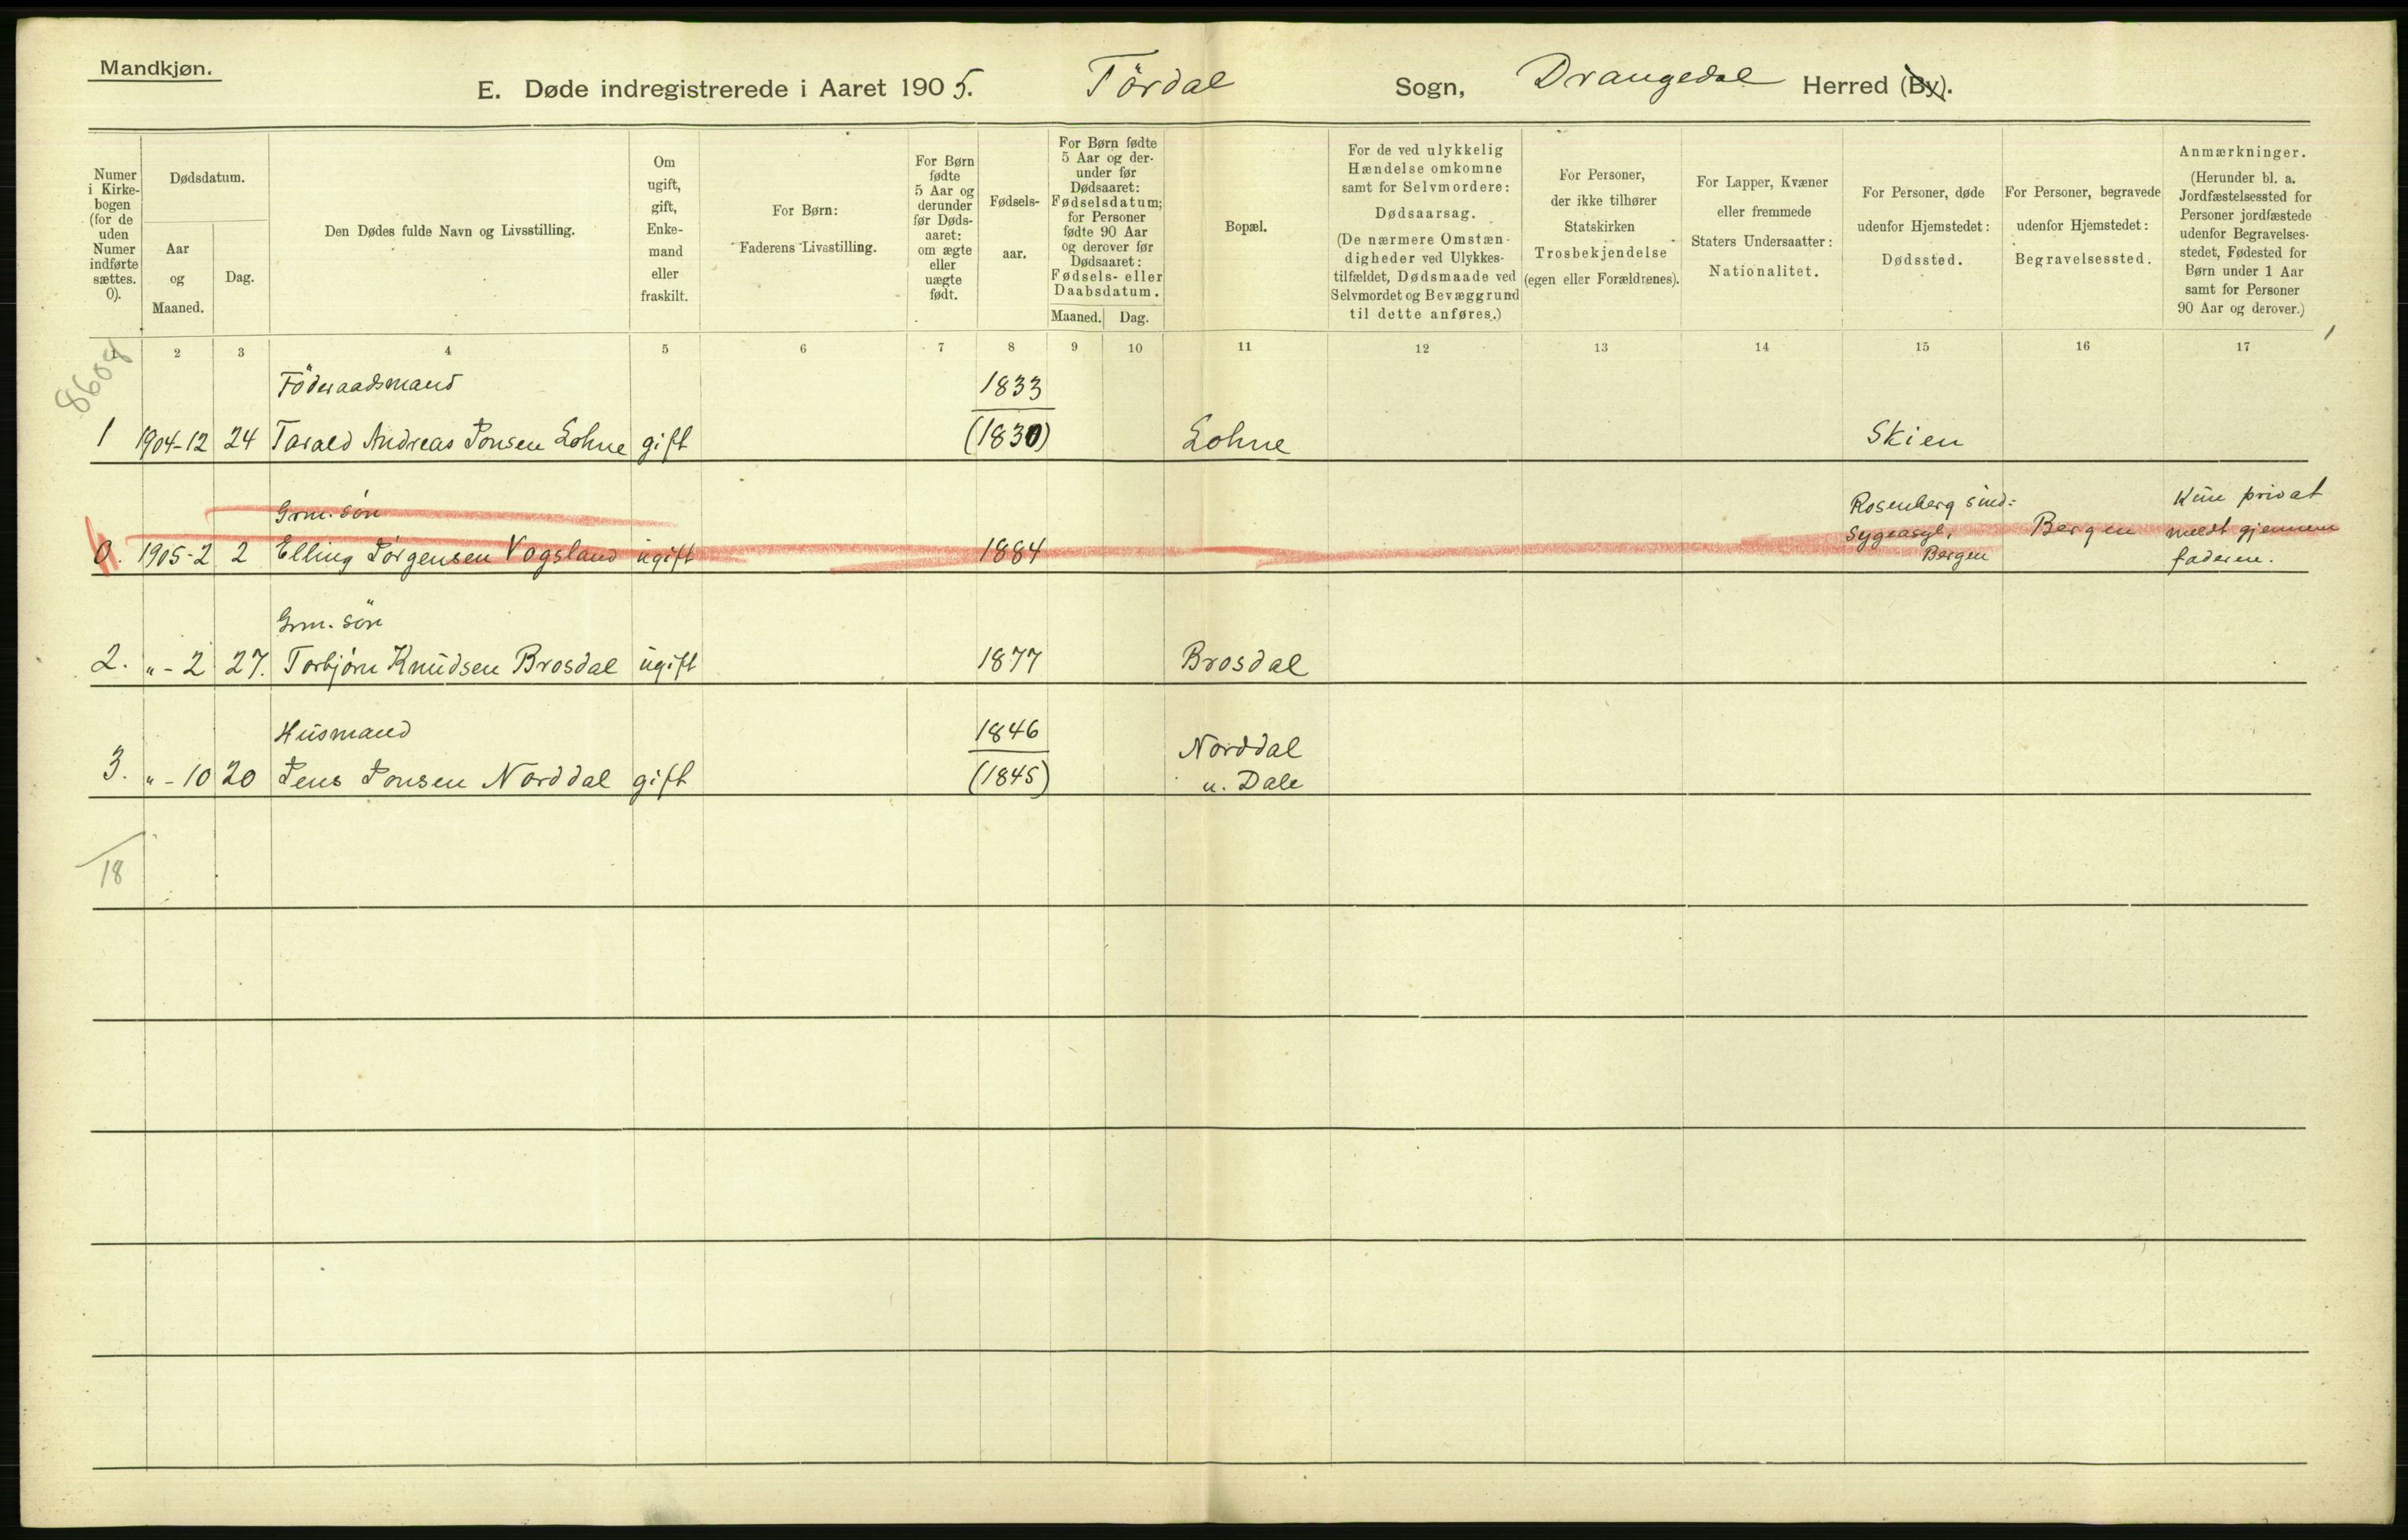 Mandkjøn.
E. Døde indregistrerede i Aaret 1905. Tördal Sogn, Drangedal Herred (By).
Numer i Kirke-bogen (for de uden Numer indførte sættes. 0).
Dødsdatum.
Aar og Maaned.
Dag.
Den Dødes fulde Navn og Livsstilling.
Om ugift, gift, Enke-mand eller fraskilt.
For Børn:
Faderens Livsstilling.
For Børn fødte 5 Aar og derunder før Døds-aaret: om ægte eller uægte født.
Fødsels-aar.
For Børn fødte 5 Aar og der-under før Dødsaaret: Fødselsdatum; for Personer fødte 90 Aar og derover før Dødsaaret: Fødsels- eller Daabsdatum.
Maaned. Dag.
Bopæl.
For de ved ulykkelig Hændelse omkomne samt for Selvmordere:
Dødsaarsag.
(De nærmere Omstæn-digheder ved Ulykkes-tilfældet, Dødsmaade ved Selvmordet og Bevæggrund til dette anføres.)
For Personer, der ikke tilhører Statskirken
Trosbekjendelse
(egen eller Forældrenes).
For Lapper, Kvæner eller fremmede Staters Undersaatter:
Nationalitet.
For Personer, døde udenfor Hjemstedet:
Dødssted.
For Personer, begravede udenfor Hjemstedet:
Begravelsessted.
Anmærkninger.
(Herunder bl. a. Jordfæstelsessted for Personer jordfæstede udenfor Begravelses-stedet, Fødested for Børn under 1 Aar samt for Personer 90 Aar og derover.)
2 3 4 5 6 7 8 9 10 11 12 13 14 15 16 17
Föderaadsmand 1833
1 1904-12 24 Tarald Andreas Jonsen Lohne gift (1830) Lohne Skien
Grm. sön Rosenberg sind: Kun privat
0. 1905-2 2 Elling Jörgensen Vogsland ugift 1884 Sygeasyl, Bergen meldt gjennem
Bergen faderen.
Grm. sön
2. " - 2 27. Torbjörn Knudsen Brosdal ugift 1877 Brosdal
Husmand 1846 Norddal
3. " - 10 20 Jens Jonsen Norddal gift (1845) u. Dale
18